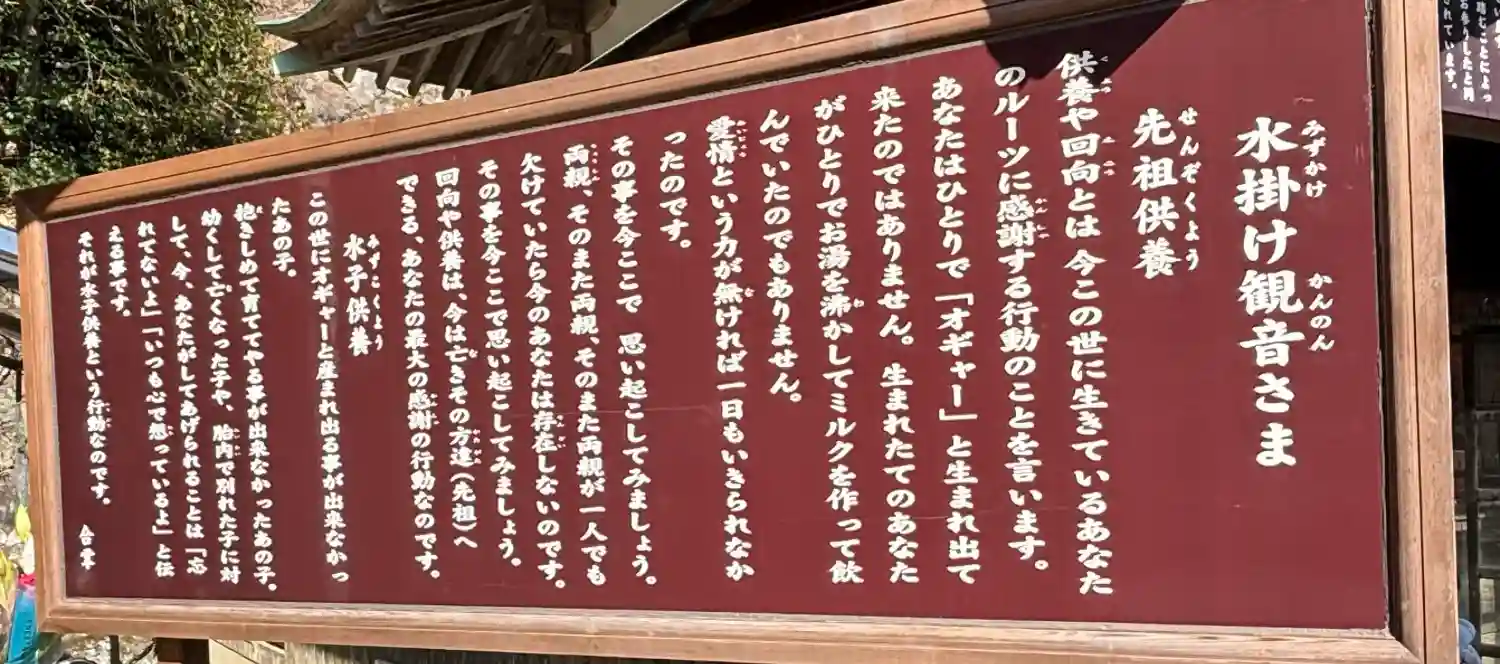 水掛け観音さま
先祖供養
供養や回向とは 今この世に生きているあなた
のルーツに感謝する行動のことを言います。
あなたはひとりで「オギャー」と生まれ出て
来たのではありません。生まれたてのあなた
がひとりでお湯を沸かしてミルクを作って飲
んでいたのでもありません。
愛情という力が無ければ一日もいきられなか
ったのです。
その事を今ここで 思い起こしてみましょう。
両親、そのまた両親、そのまた両親が一人でも
欠けていたら今のあなたは存在しないのです。
その事を今ここで思い起こしてみましょう。
回向や供養は、今は亡きその方達(先祖)へ
できる、あなたの最大の感謝の行動なのです。
水子供養
この世にオギャーと産まれ出る事が出来なかっ
たあの子。
抱きしめて育ててやる事が出来なかったあの子。
幼くして亡くなった子や、胎内で別れた子に対
して、今、あなたがしてあげられることは「忘
れてないよ」「いつも心で想っているよ」と伝
える事です。
それが水子供養という行動なのです。 合掌